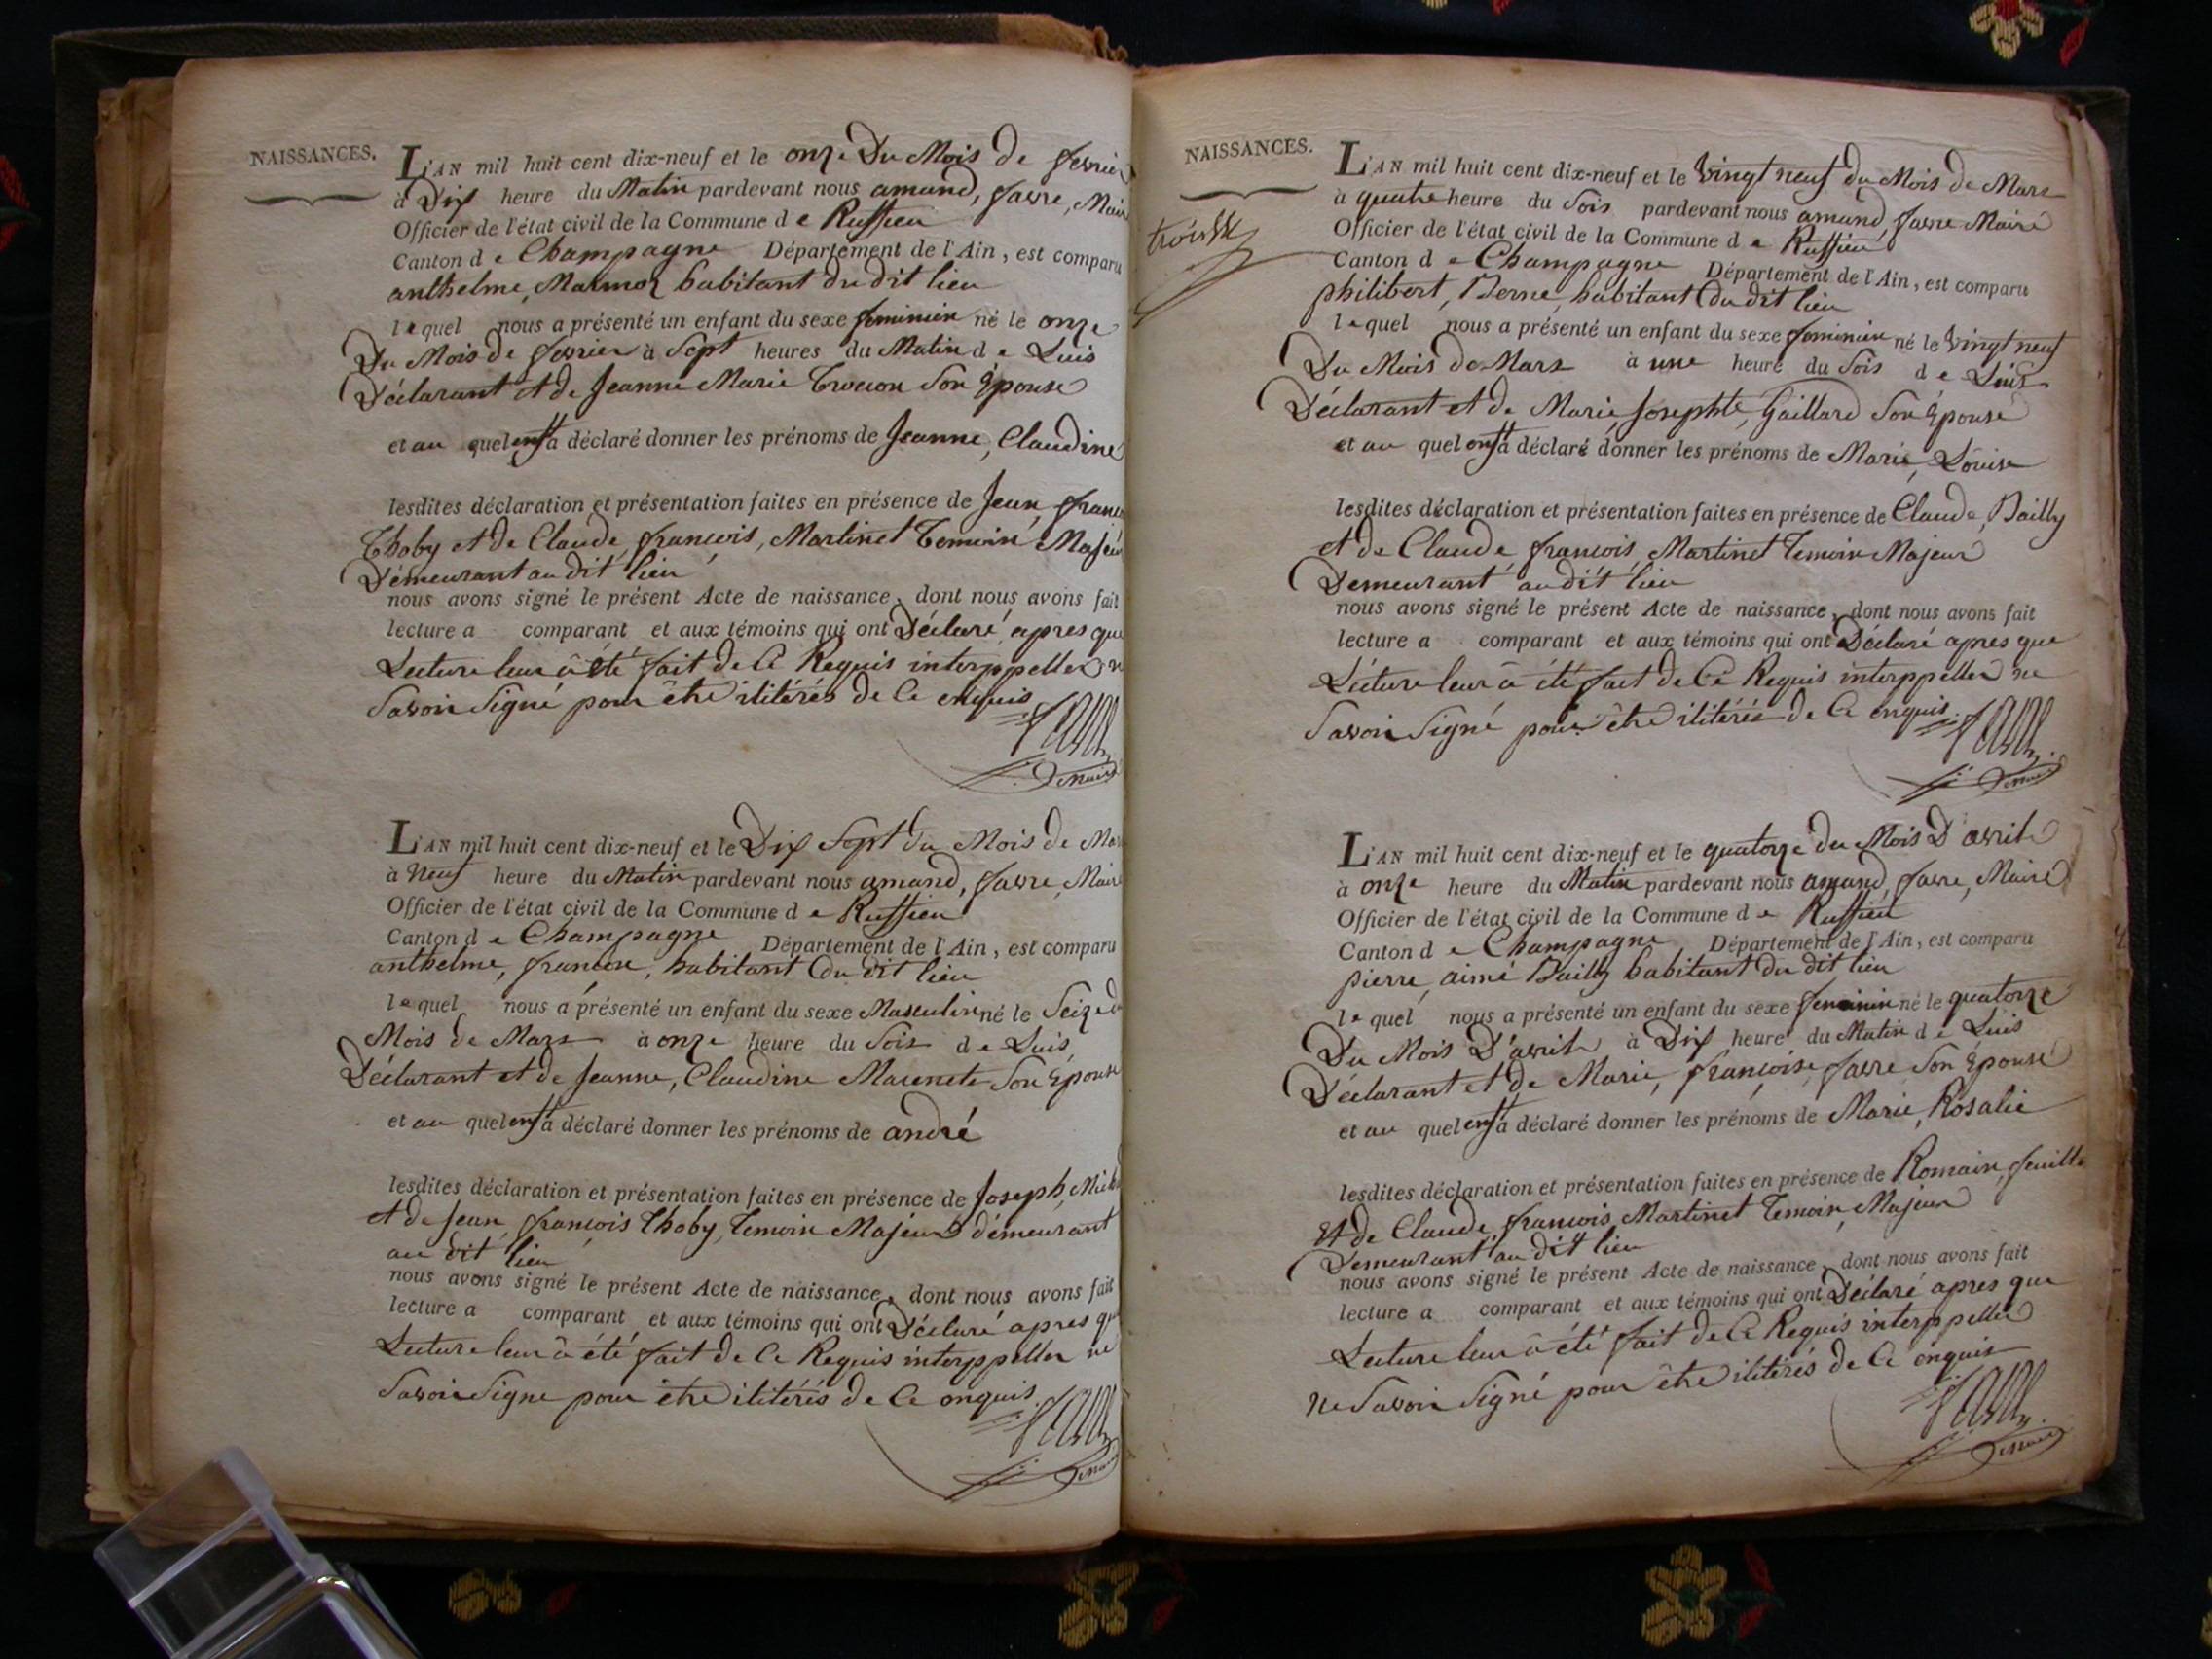 NAISSANCES.
L'AN mil huit cent dix-neuf et le onze Du Mois de fevrier
à Dix heure du Matin pardevant nous amand, favre, Maire
Officier de l'état civil de la Commune de Ruffieu
Canton de Champagne Département de l'Ain, est comparu
anthelme, Marmoz habitant du dit lieu
lequel nous a présenté un enfant du sexe feminien né le onze
Du Mois de fevrier à Sept heures du Matin de Luis
Déclarant et de Jeanne Marie Son Épouse
et au quel enft a déclaré donner les prénoms de Jeanne, Claudine
lesdites déclaration et présentation faites en présence de Jean, franc
Thoby et de Claude, francois, Martinet Temoin Majeur
Démeurant au dit lieu
nous avons signé le présent Acte de naissance, dont nous avons fait
lecture a comparant et aux témoins qui ont Déclaré apres que
Lecture leur â été fait de Ce Requis interppeller ne
Savoir Signé pour être ilitérés de Ce enquis
favre
Maire
L'AN mil huit cent dix-neuf et le Dix Sept du Mois de Mar
à Neuf heure du Matin pardevant nous amand, favre, Maire
Officier de l'état civil de la Commune de Ruffieu
Canton de Champagne Département de l'Ain, est comparu
anthelme, habitant du dit lieu
lequel nous a présenté un enfant du sexe Masculin né le Seize du
Mois de Mars à onze heure du Soir de Luis
Déclarant et de Jeanne, Claudine Son Épouse
et au quel enft a déclaré donner les prénoms de andré
lesdites déclaration et présentation faites en présence de Joseph,
et de Jean, françois Thoby, Temoin Majeur démeurant
au dit lieu
nous avons signé le présent Acte de naissance, dont nous avons fait
lecture a comparant et aux témoins qui ont Déclaré apres que
Lecture leur â été fait de Ce Requis interppeller ne
Savoir Signe pour être ilitérés de Ce enquis
favre
Maire
NAISSANCES.
L'AN mil huit cent dix-neuf et le Vingt neuf du Mois de Mars
à quatre heure du Soir pardevant nous amand, favre Maire
Officier de l'état civil de la Commune de Ruffieu
Canton de Champagne Département de l'Ain, est comparu
philibert, Berne, habitant du dit lieu
lequel nous a présenté un enfant du sexe feminien né le Vingt neuf
Du Mois de Mars à une heure du Soir de Luis
Déclarant et de Marie, Josephte, Gaillard Son Épouse
et au quel enft a déclaré donner les prénoms de Marie, Louise
lesdites déclaration et présentation faites en présence de Claude, Bailly
et de Claude francois, Martinet Temoin Majeur
Demeurant au dit lieu
nous avons signé le présent Acte de naissance, dont nous avons fait
lecture a comparant et aux témoins qui ont Déclaré apres que
Lecture leur â été fait de Ce Requis interppeller ne
Savoir Signé pour être ilitérés de Ce enquis
favre
Maire
L'AN mil huit cent dix-neuf et le quatorze du Mois D'avril
à onze heure du Matin pardevant nous amand, favre, Maire
Officier de l'état civil de la Commune de Ruffieu
Canton de Champagne Département de l'Ain, est comparu
pierre, aimé Bailly habitant du dit lieu
lequel nous a présenté un enfant du sexe feminin né le quatorze
Du Mois D'avril à Dix heure du Matin de Luis
Déclarant et de Marie, françoise, favre Son Épouse
et au quel enft a déclaré donner les prénoms de Marie, Rosalie
lesdites déclaration et présentation faites en présence de Romain,
Et de Claude, francois Martinet Temoin, Majeur
Demeurant au dit lieu
nous avons signé le présent Acte de naissance, dont nous avons fait
lecture a comparant et aux témoins qui ont Déclaré apres que
Lecture leur â été fait de Ce Requis interppeller
ne Savoir Signé pour être ilitérés de Ce enquis
favre
Maire